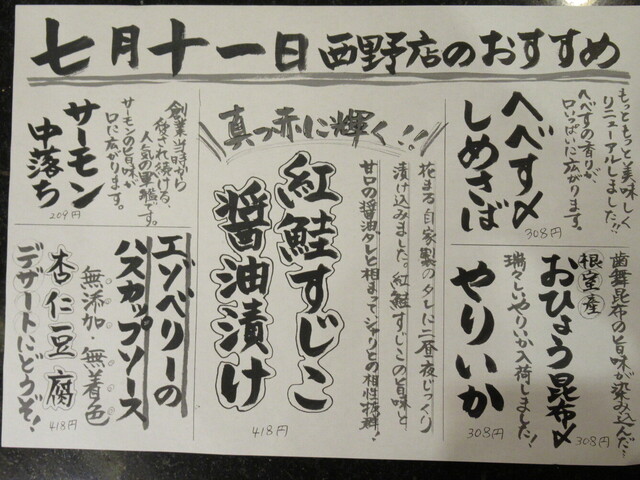 七月十一日 西野店のおすすめ
もっともっと美味しく
リニューアルしました!!
へべすの香りが、
口いっぱいに広がります。
へべす〆
しめさば
308円
歯舞昆布の旨味が染み込んだ…
根室産
おひょう昆布〆
308円
瑞々しいやりいか入荷しました!
やりいか
308円
真っ赤に輝く!!
花まる自家製のタレに二昼夜じっくり
漬け込みました。紅鮭すじこの旨味と
甘口の醤油タレと相まってシャリとの相性抜群!
紅鮭すじこ
醤油漬け
418円
創業当時から
愛され続ける、
人気の軍艦です。
サーモンの旨味が
口に広がります。
サーモン
中落ち
209円
エゾベリーの
ハスカップソース
無添加・無着色
杏仁豆腐
418円
デザートにどうぞ!